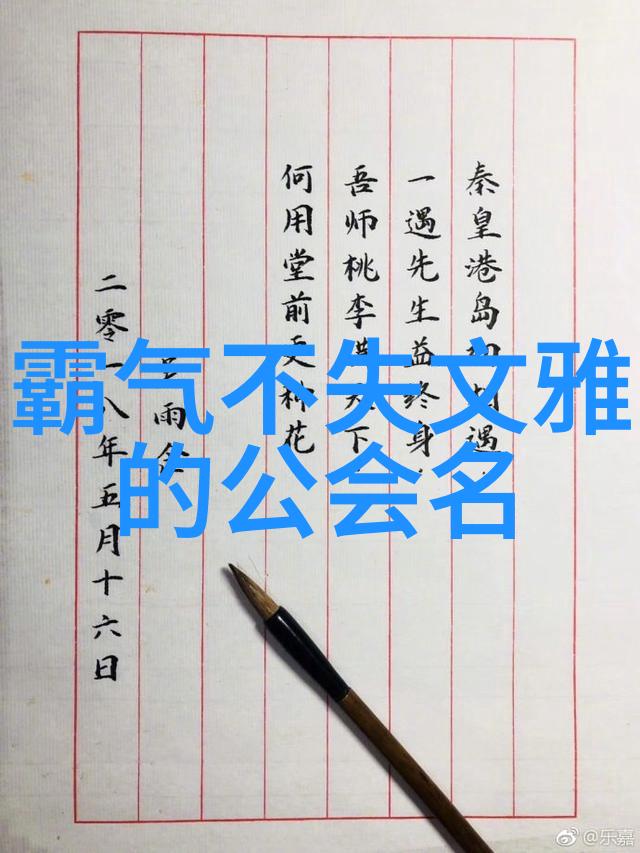 霸气不失文雅
的公会名
秦皇港岛初相遇
一遇先生益终身
吾师桃李满天下
何用堂前更种花
雨
二零一八年五月十六日
@乐嘉